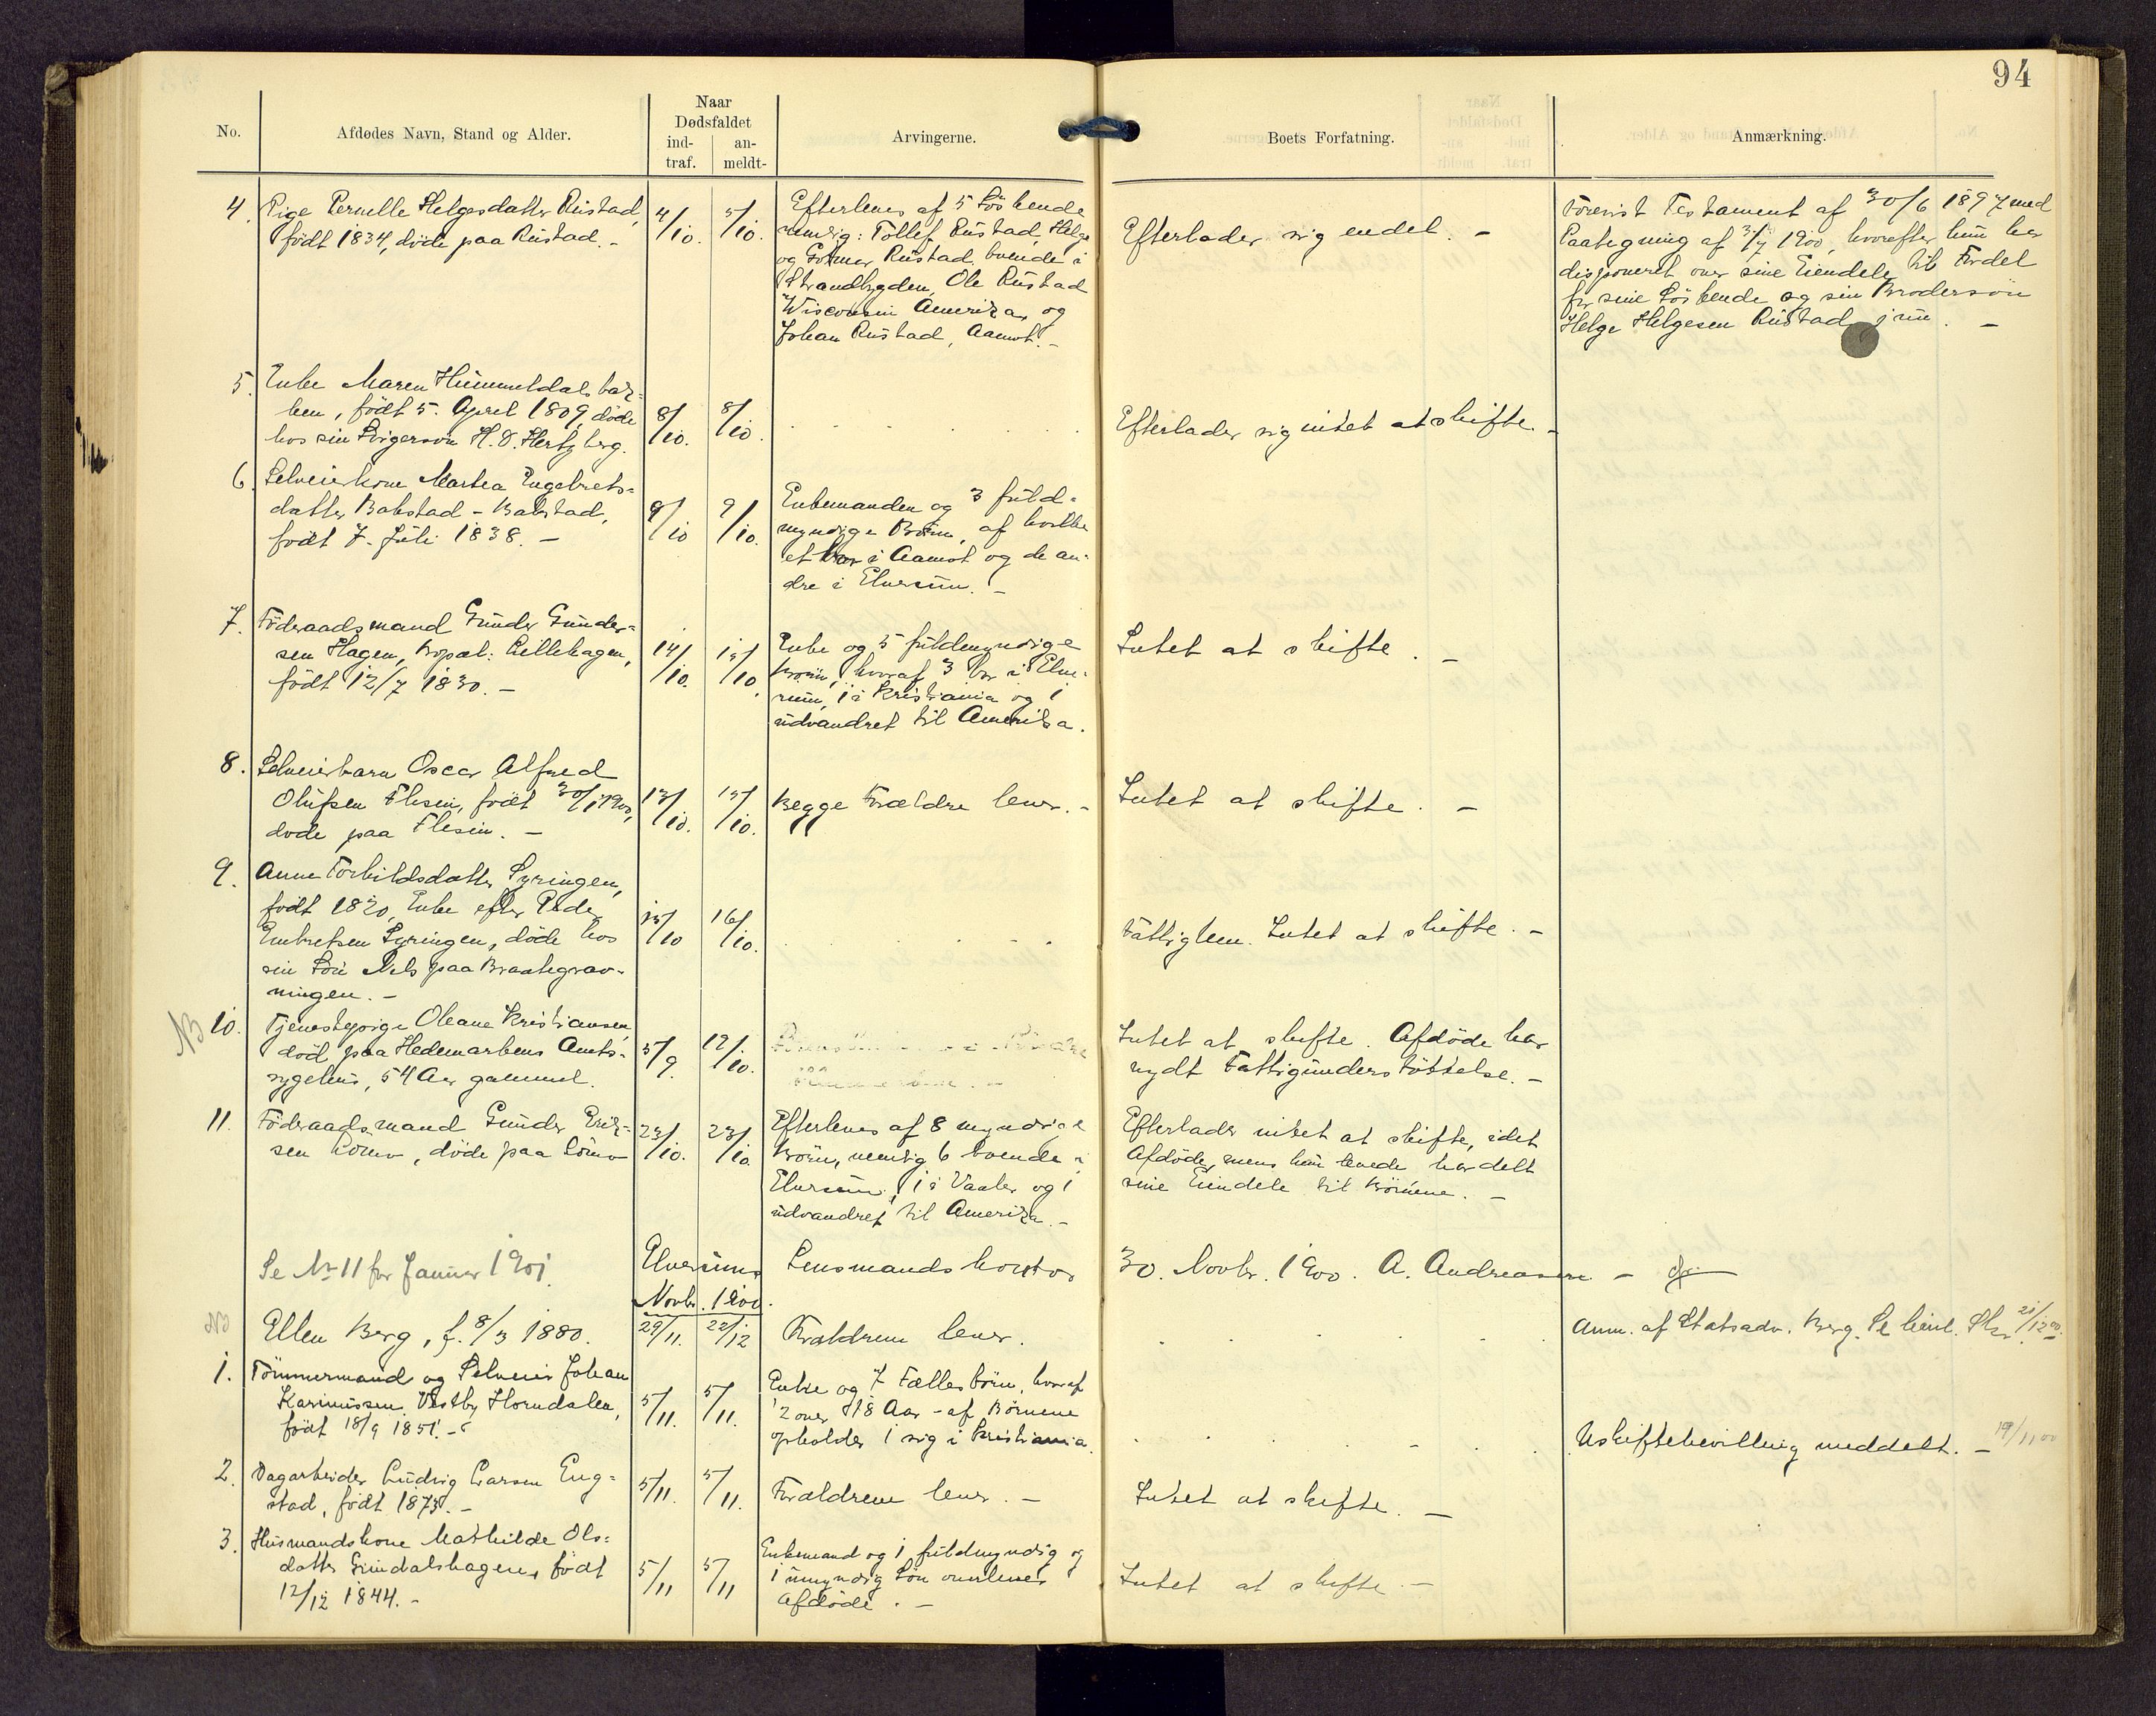 94
No.
Afdødes Navn, Stand og Alder.
Naar
Dødsfaldet
ind-
traf.
an-
meldt-
Arvingerne.
Boets Forfatning.
Anmærkning.
4. Pige Pernelle Helgesdatter Rustad,
født 1834, døde paa Rustad. -
4/10. 5/10.
Efterleves af 5 Søskende
nemlig: Tollef Rustad, Helge
og Gunnar Rustad boende i
Strandbygden, Ole Rustad
Wisconsin Amerika, og
Johan Rustad, Aamot. -
Efterlader sig endel. -
Forevist Testament af 30/6 1897 med
Paategning af 3/7 1900, hvorefter hun har
disponeret over sine Eiendele til Fordel
for sine Søskende og sin Brodersøn
Helge Helgesen Rustad jun. -
5. Enke Maren Hummeldalsbak=
ken, født 5. April 1809, døde
hos sin Svigersøn H. O. Hertzberg.
8/10. 8/10.
Efterlader sig intet at skifte. -
6. Selveierkone Marthea Engebrets=
datter Bakstad - Bakstad,
født 7. Juli 1838. -
9/10 9/10.
Enkemanden og 3 fuld=
myndige Børn, af hvilke
et bor i Aamot og de an=
dre i Elverum. -
7. Føderaadsmand Gunder Gunder=
sen Hagen, Bopæl: Lillehagen,
født 12/7 1830. -
14/10. 15/10.
Enke og 5 fuldmyndige
Børn, hvoraf 3 bor i Elve=
rum, 1 i Kristiania og 1
udvandret til Amerika.
Intet at skifte. -
8. Selveierbarn Oscar Alfred
Olufsen Flesin, født 30/1 1900,
døde paa Flesin. -
13/10. 15/10.
Begge Forældre lever. -
Intet at skifte. -
9. Anne Torkildsdatter Syringen,
født 1820, Enke efter Peder
Embretsen Syringen, døde hos
sin Søn Nils paa Braategrav=
ningen. -
15/10 16/10.
Fattiglem. Intet at skifte. -
NB 10. Tjenestepige Oleane Kristiansen,
død paa Hedemarkens Amts=
sygehus, 54 Aar gammel.
5/9. 12/10.
Intet at skifte. Afdøde har
nydt Fattigunderstøttelse. -
11. Føderaadsmand Gunder Erik=
sen Lømo, døde paa Lømo
23/10. 23/10.
Efterleves af 8 myndige
Børn, nemlig 6 boende i
Elverum, 1 i Vaaler og 1
udvandret til Amerika. -
Efterlader intet at skifte, idet
Afdøde, mens han levede har delt
sine Eiendele til Børnene. -
Se No 11 for Januar 1901.
Elverums Lensmandskontor 30. Novbr. 1900. A. Andreassen -
Novbr. 1900.
NB Ellen Berg, f. 8/3 1880.
29/11. 22/12
Forældrene lever.
Anm. af Statsadv. Berg. Se
1. Tømmermand og Selveier Johan
Karinussen Vestby, Horndalen,
født 18/9 1851. -
5/11. 5/11.
Enke og 7 Fællesbørn, hvoraf
2 over 18 Aar - af Børnene
opholder 1 sig i Kristiania.
Uskiftebevilling meddelt. - 19/11 00
2. Dagarbeider Ludvig Larsen Eng=
stad, født 1873. -
5/11. 5/11.
Forældrene lever. -
Intet at skifte. -
3. Husmandskone Mathilde Ols=
datter Grindalshagen, født
12/12 1844. -
5/11 5/11
Enkemand og 1 fuldmyndig og
1 umyndig Søn overlever
Afdøde. -
Intet at skifte. -